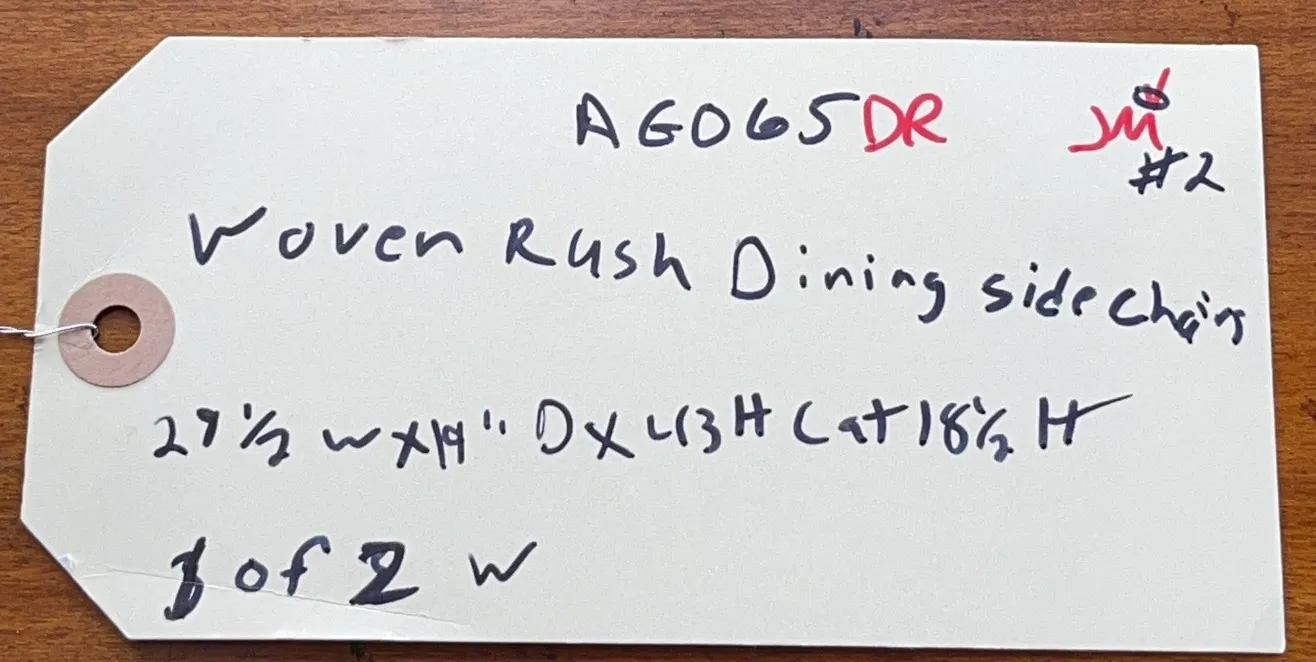 AG065DR JM
#2
Woven Rush Dining side chairs
27 1/2 W X 19" D X 43 H Cat 18 1/2 H
1 of 2 W